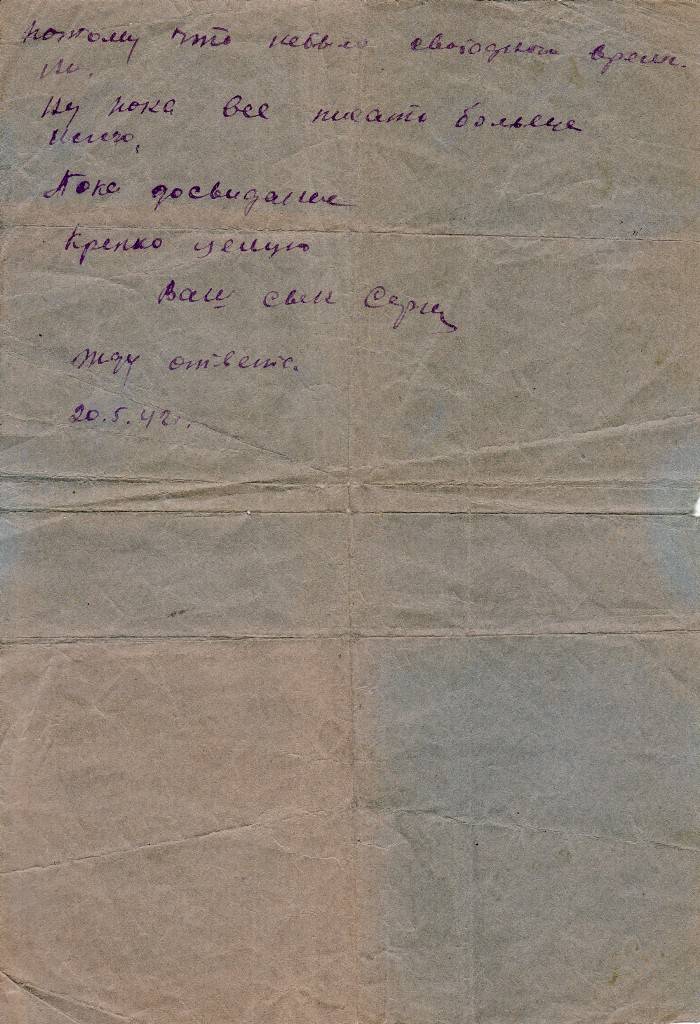 потому что небыло свободного времи-
ни.
Ну пока все писать больше
нечего,
Пока досвидания
Крепко целую
Ваш сын
Жду ответа.
20.5.42г.